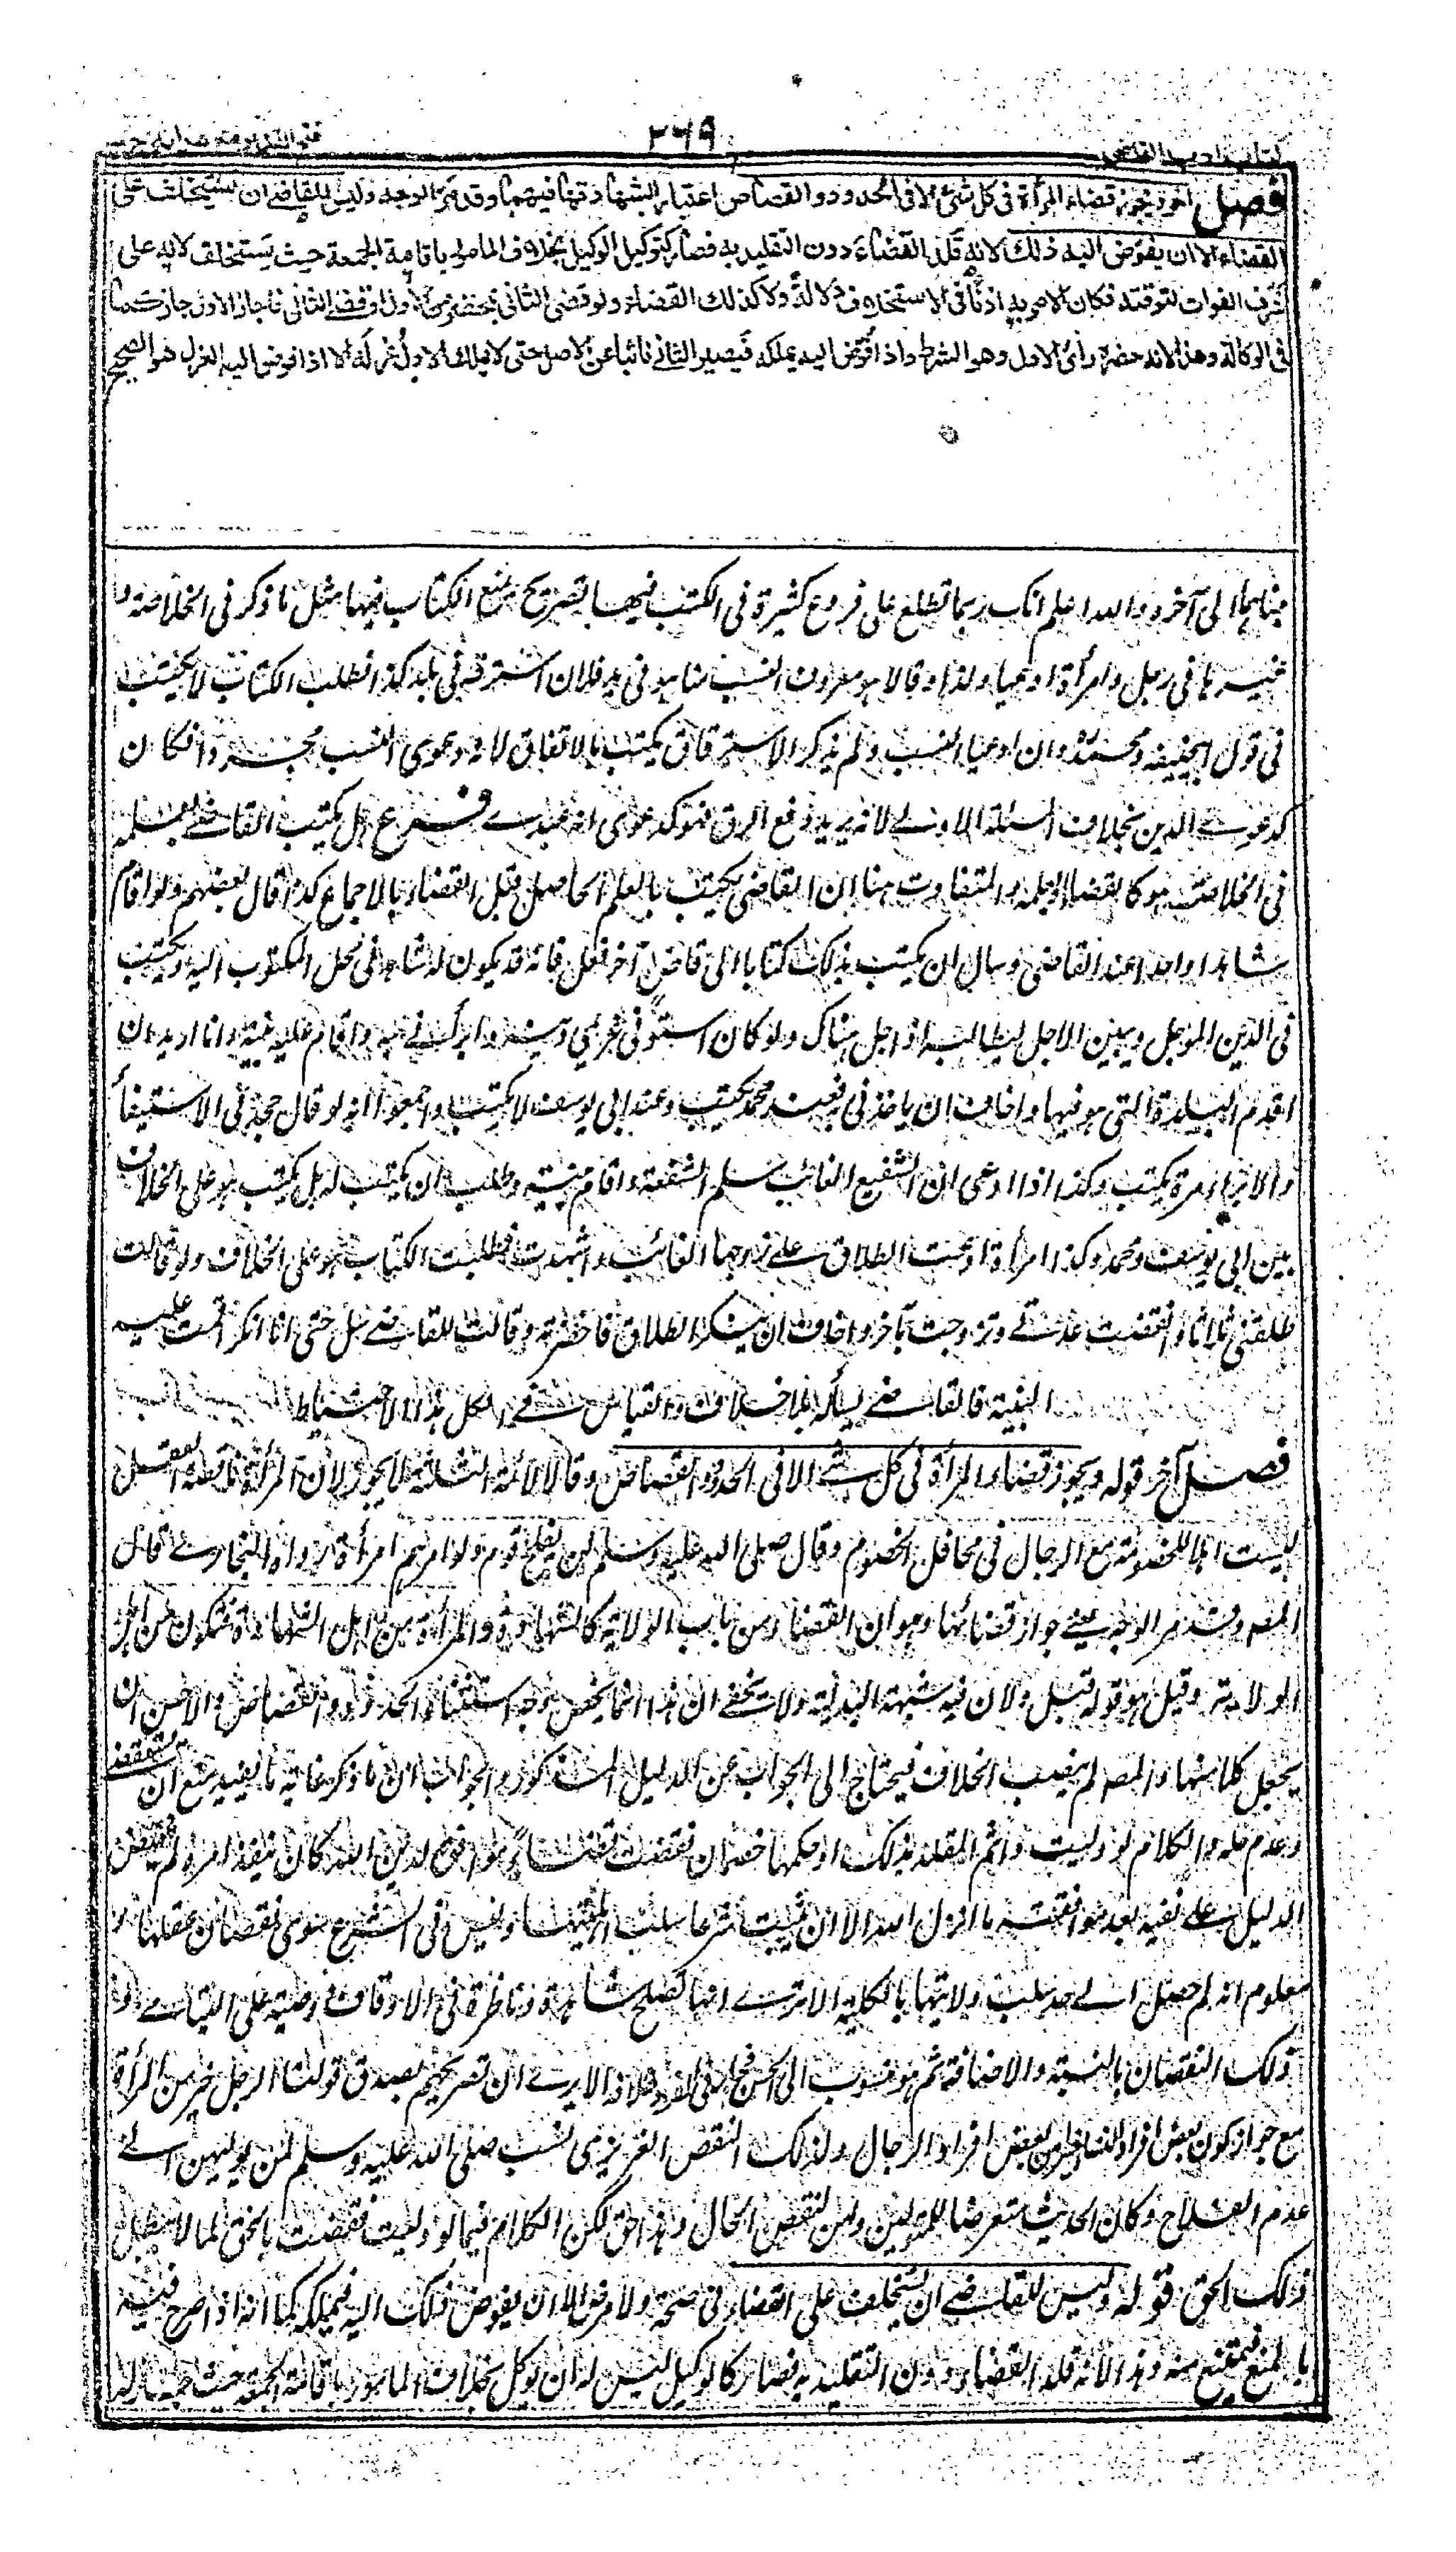 كتاب ادب القاضي
٣٦٩
فصل آخر ويجوز قضاء المرأة فى كل شئ الا فى الحدود والقصاص اعتبارا بشهادتها فيهما وقد مر الوجه وليس للقاضى ان يستخلف على
القضاء الا ان يفوض اليه ذلك لانه قلد القضاء دون التقليد به فصار كتوكيل الوكيل بخلاف المامور باقامة الجمعة حيث يستخلف لانه على
شرف الفوات لتوقته فكان الامر به اذنا فى الاستخلاف دلالة ولا كذلك القضاء ولو قضى الثانى بمحضر من الاول او قضى الثانى فاجاز الاول جاز كما
فى الوكالة وهذا لانه حضره رأى الاول وهو الشرط واذا فوض اليه يملكه فيصير الثانى نائبا عن الاصل حتى لا يملك الاول عزله الا اذا فوض اليه العزل هو الصحيح
الى آخره والله اعلم انك ربما تطلع على فروع كثيرة فى الكتب فيها تصريح بمنع الكتاب فيها مثل ما ذكر فى الخلاصة و
غيرها فى رجل وامرأة ادعيا ولدا وقالا هو معروف النسب منا هو فى يد فلان استرقه فى بلد كذا فطلب الكتاب لا يكتب
فى قول ابيحنيفه ومحمد وان ادعيا النسب ولم يذكر الاسترقاق يكتب بالاتفاق لانه دعوى النسب مجردا فكان
كدعوى الدين بخلاف المسئلة الاولى لانه يريد دفع الرق فهو كدعوى انه عبدى فرع هل يكتب القاضى بعلمه
فى الخلاصة هو كالقضاء بعلمه والتفاوت هنا ان القاضى يكتب بالعلم الحاصل قبل القضاء بالاجماع كذا قال بعضهم ولو اقام
شاهدا واحدا عند القاضى وسال ان يكتب بذلك كتابا الى قاض آخر فعل فانه قد يكون له شاهد فى محل المكتوب اليه ويكتب
فى الدين الموجل ويبين الاجل ليطالبه اذا حل هناك ولو كان استوفى غريمى دينه وابرأنى منه واقام عليه بينة وانا اريد ان
اقدم البلدة التى هو فيها واخاف ان ياخذنى به فعند محمد يكتب وعند ابى يوسف لا يكتب واجمعوا انه لو قال جحدنى الاستيفاء
والابراء مرة يكتب وكذا اذا ادعى ان الشفيع الغائب سلم الشفعة واقام بينة وطلب ان يكتب له هل يكتب هو على الخلاف
بين ابى يوسف ومحمد وكذا امرأة ادعت الطلاق على زوجها الغائب واشهدت فطلبت الكتاب هو على الخلاف ولو قالت
طلقنى ثلاثا وانقضت عدتى وتزوجت بآخر واخاف ان ينكر الطلاق فاحضرته وقالت للقاضى سل حتى اذا انكر اقمت عليه
البينة فالقاضى يسأله بلا خلاف والقياس فى الكل هذا الاحتياط
فصل آخر قوله ويجوز قضاء المرأة فى كل شئ الا فى الحدود والقصاص وقال الائمة الثلاثة لا يجوز لان المرأة ناقصة العقل
ليست اهلا للخصومة مع الرجال فى محافل الخصوم وقال صلى الله عليه وسلم لن يفلح قوم ولوا امرهم امرأة رواه البخارى قال
المصـ وقد مر الوجه يعنى جواز قضائها وهو ان القضاء من باب الولاية كالشهادة والمرأة من اهل الشهادة فتكون من اهل
الولاية وقيل هو قوله قبل ولان فيه شبهة البدلية ولا يخفى ان هذا انما يخص وجه استثناء الحدود والقصاص والاحسن ان
يجعل كلا منهما والمصـ لم ينصب الخلاف فيحتاج الى الجواب عن الدليل المذكور والجواب ان ما ذكر غاية ما يفيد منع ان تستقضى
وعدم حله والكلام لو وليت واثم المقلد بذلك او حكمها خصمان فقضت قضاء موافقا لدين الله اكان ينفذ ام لا لم ينتهض
الدليل على نفيه بعد موافقته ما انزل الله الا ان يثبت شرعا سلب اهليتها وليس فى الشرع سوى نقصان عقلها و
معلوم انه لم يصل الى حد سلب ولايتها بالكلية الا ترى انها تصلح شاهدة وناظرة فى الاوقاف ووصية على اليتامى و
ذلك النقصان بالنسبة والاضافة ثم هو منسوب الى الجنس فجاز فى الفرد خلافه الا يرى الى تصريحهم بصدق قولنا الرجل خير من المرأة
مع جواز كون بعض افراد النساء خيرا من بعض افراد الرجال ولذلك النقص الغريزى نسب صلى الله عليه وسلم لمن يوليهن الى
عدم الفلاح وكان الحديث متعرضا للمولين ولهن لنقص الحال وهذا حق لكن الكلام فيما لو وليت فقضت بالحق لما لا يبطل
ذلك الحق قوله وليس للقاضى ان يستخلف على القضاء فى صحة ولا مرض الا ان يفوض ذلك اليه فيملكه كما انه اذا صرح فيه
بالمنع يمتنع منه وهذا لانه قلد القضاء دون التقليد به فصار كالوكيل ليس له ان يوكل بخلاف المامور باقامة الجمعة حيث جاز له